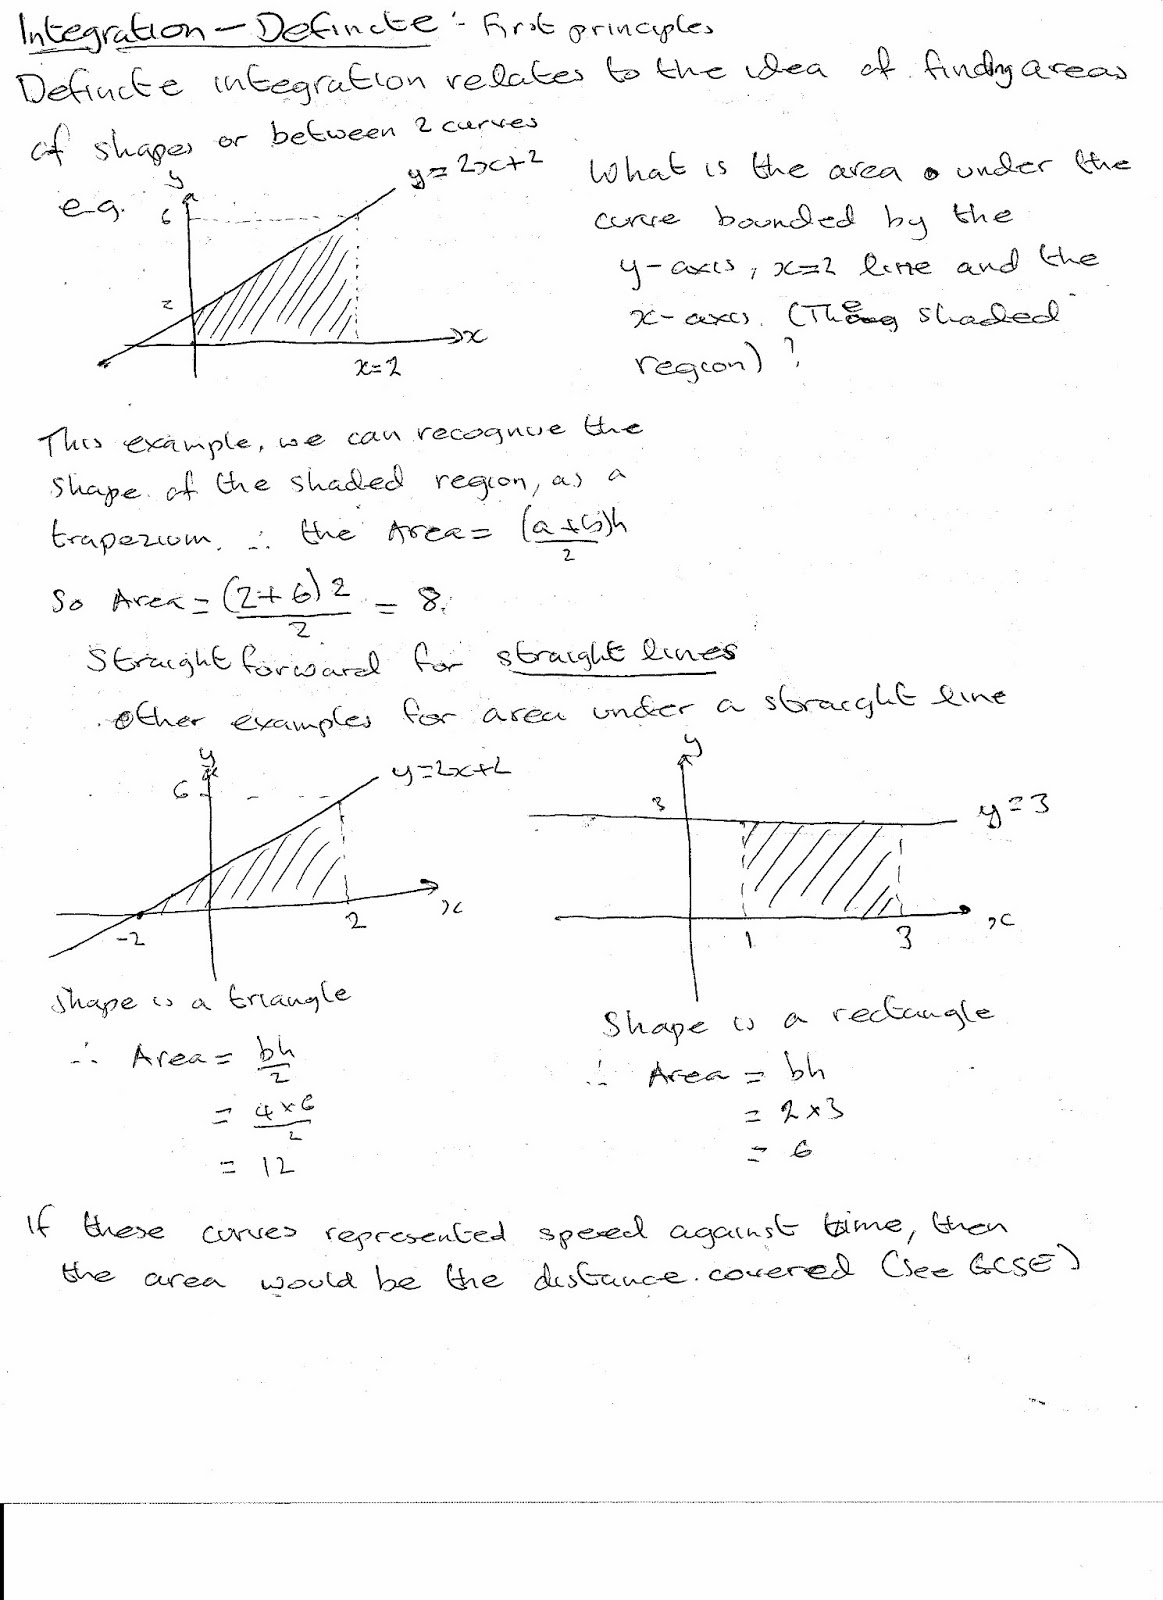 Integration – Definite :- First principles
Definite integration relates to the idea of finding areas
of shapes or between 2 curves
e.g.
y
6
2
y=2x+2
x
x=2
What is the area under the
curve bounded by the
y-axis, x=2 line and the
x-axis. (The shaded
region)?
This example, we can recognise the
shape of the shaded region, as a
trapezium. ∴ the Area = (a+b)h/2
So Area = (2+6)2/2 = 8.
Straightforward for straight lines
Other examples for area under a straight line
y
6
y=2x+2
x
-2
2
y
3
y=3
x
1
3
Shape is a triangle
∴ Area = bh/2
= 4×6/2
= 12
Shape is a rectangle
∴ Area = bh
= 2×3
= 6
If these curves represented speed against time, then
the area would be the distance covered (See GCSE)